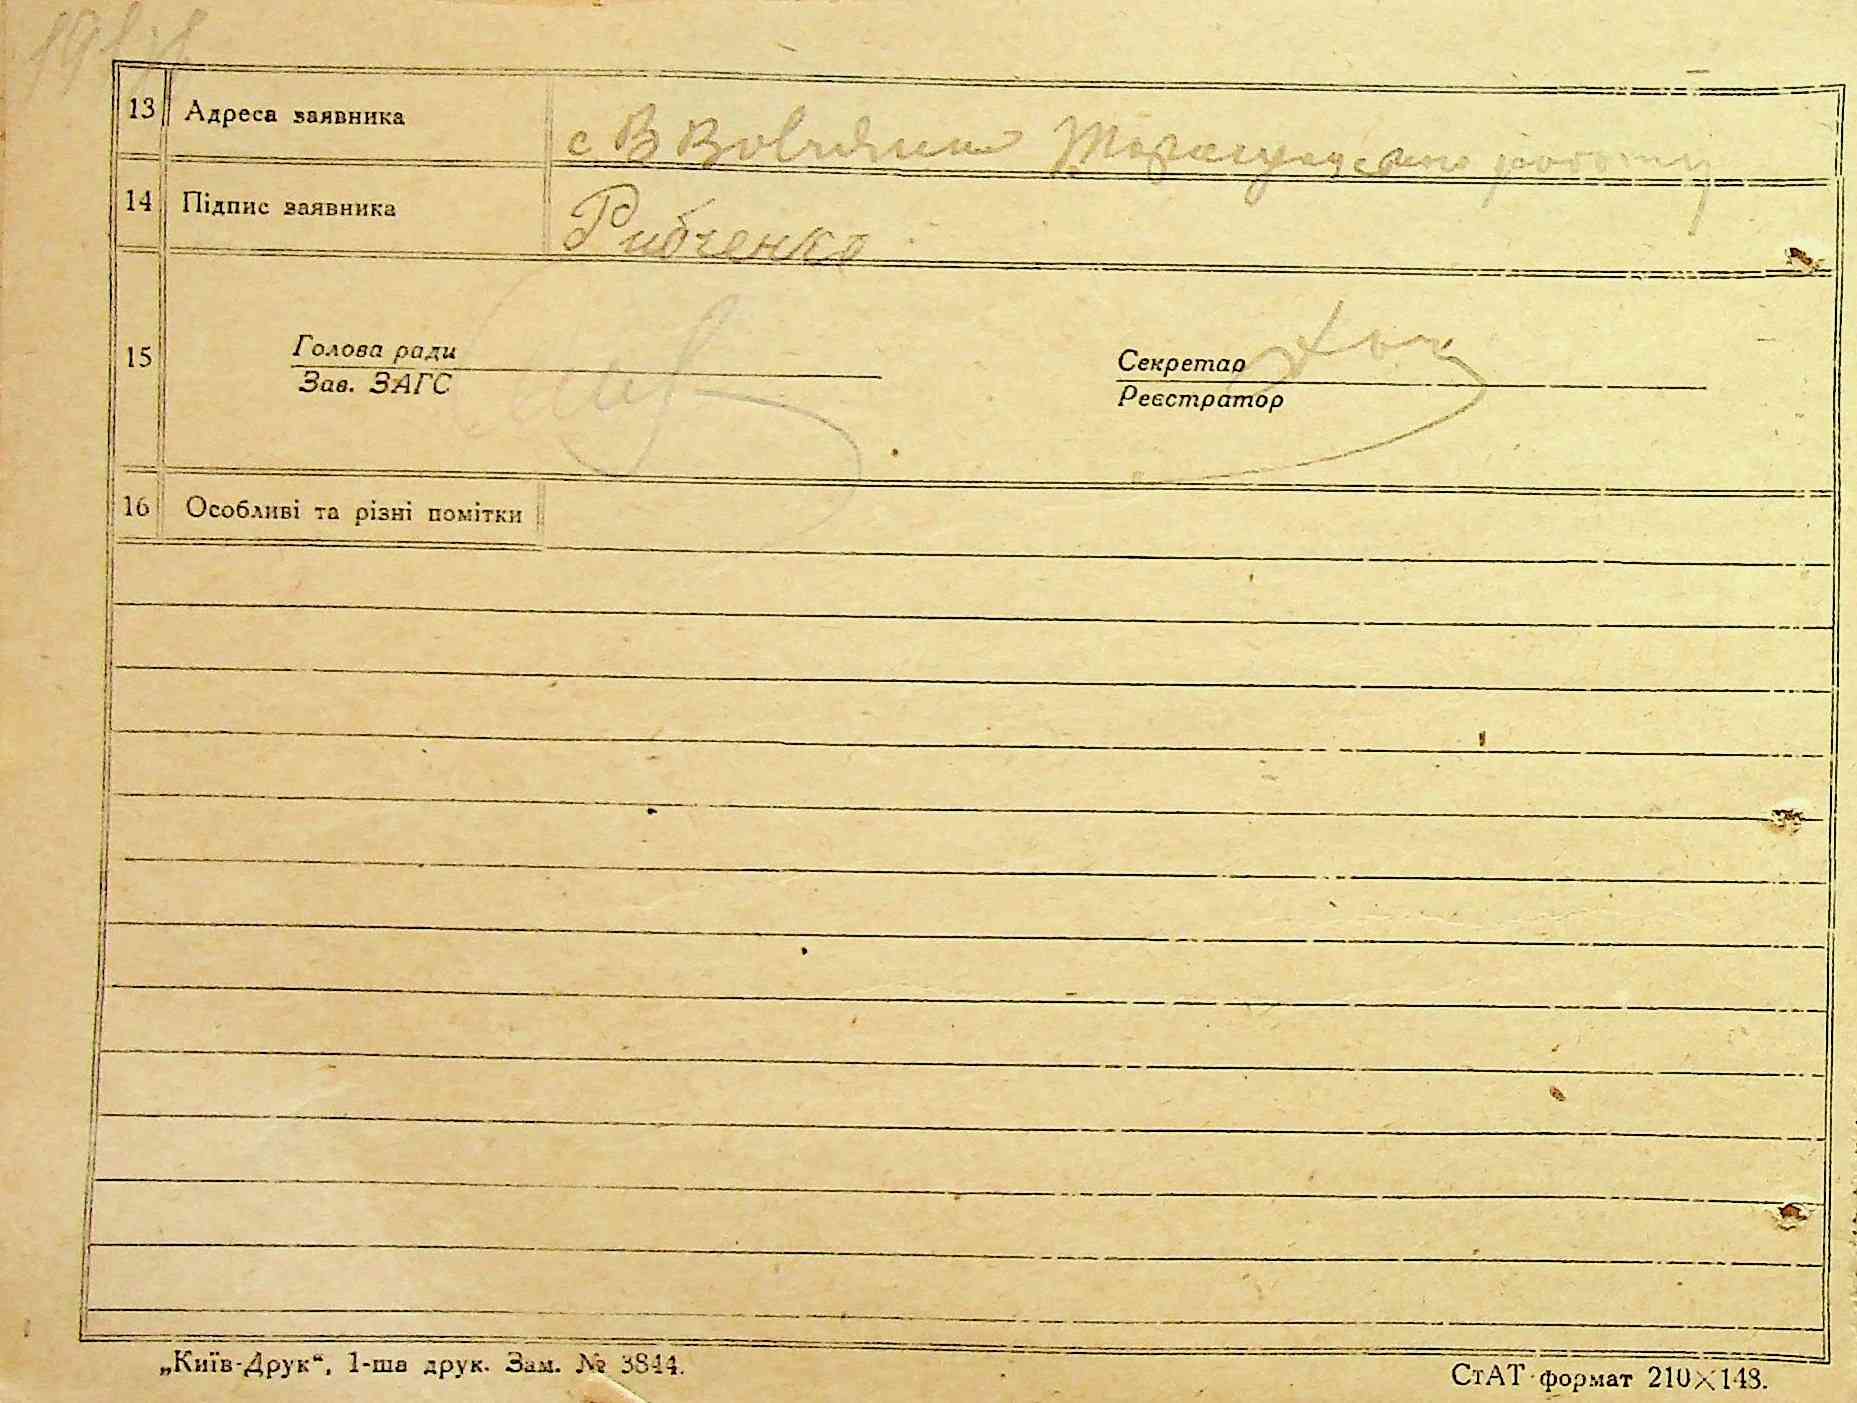 13 Адреса заявника с В Вовнянка
14 Підпис заявника Рибченко
15 Голова ради Секретар
Зав. ЗАГС Реєстратор
16 Особливі та різні помітки
„Київ-Друк“, 1-ша друк. Зам. № 3844. СтАТ формат 210×148.